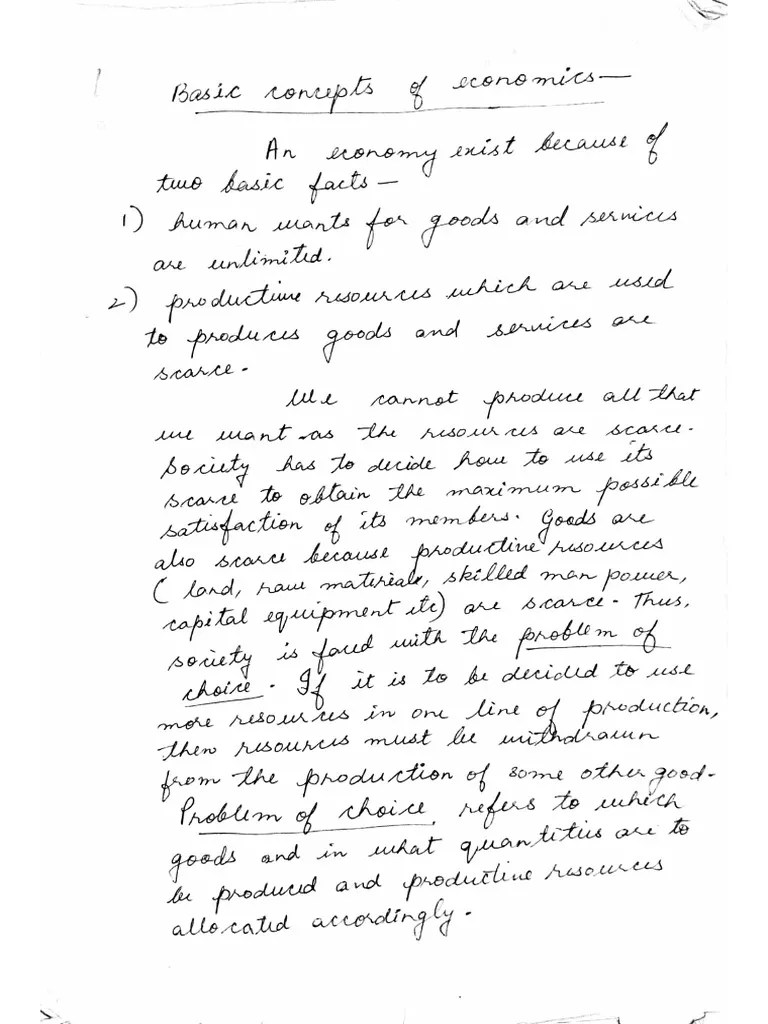 Basic concepts of economics—
An economy exist because of
two basic facts—
1) human wants for goods and services
are unlimited.
2) productive resources which are used
to produces goods and services are
scarce.
We cannot produce all that
we want as the resources are scarce.
Society has to decide how to use its
scarce to obtain the maximum possible
satisfaction of its members. Goods are
also scarce because productive resources
( land, raw materials, skilled man power,
capital equipment etc) are scarce. Thus,
society is faced with the problem of
choice. If it is to be decided to use
more resources in one line of production,
then resources must be withdrawn
from the production of some other good.
Problem of choice refers to which
goods and in what quantities are to
be produced and productive resources
allocated accordingly.